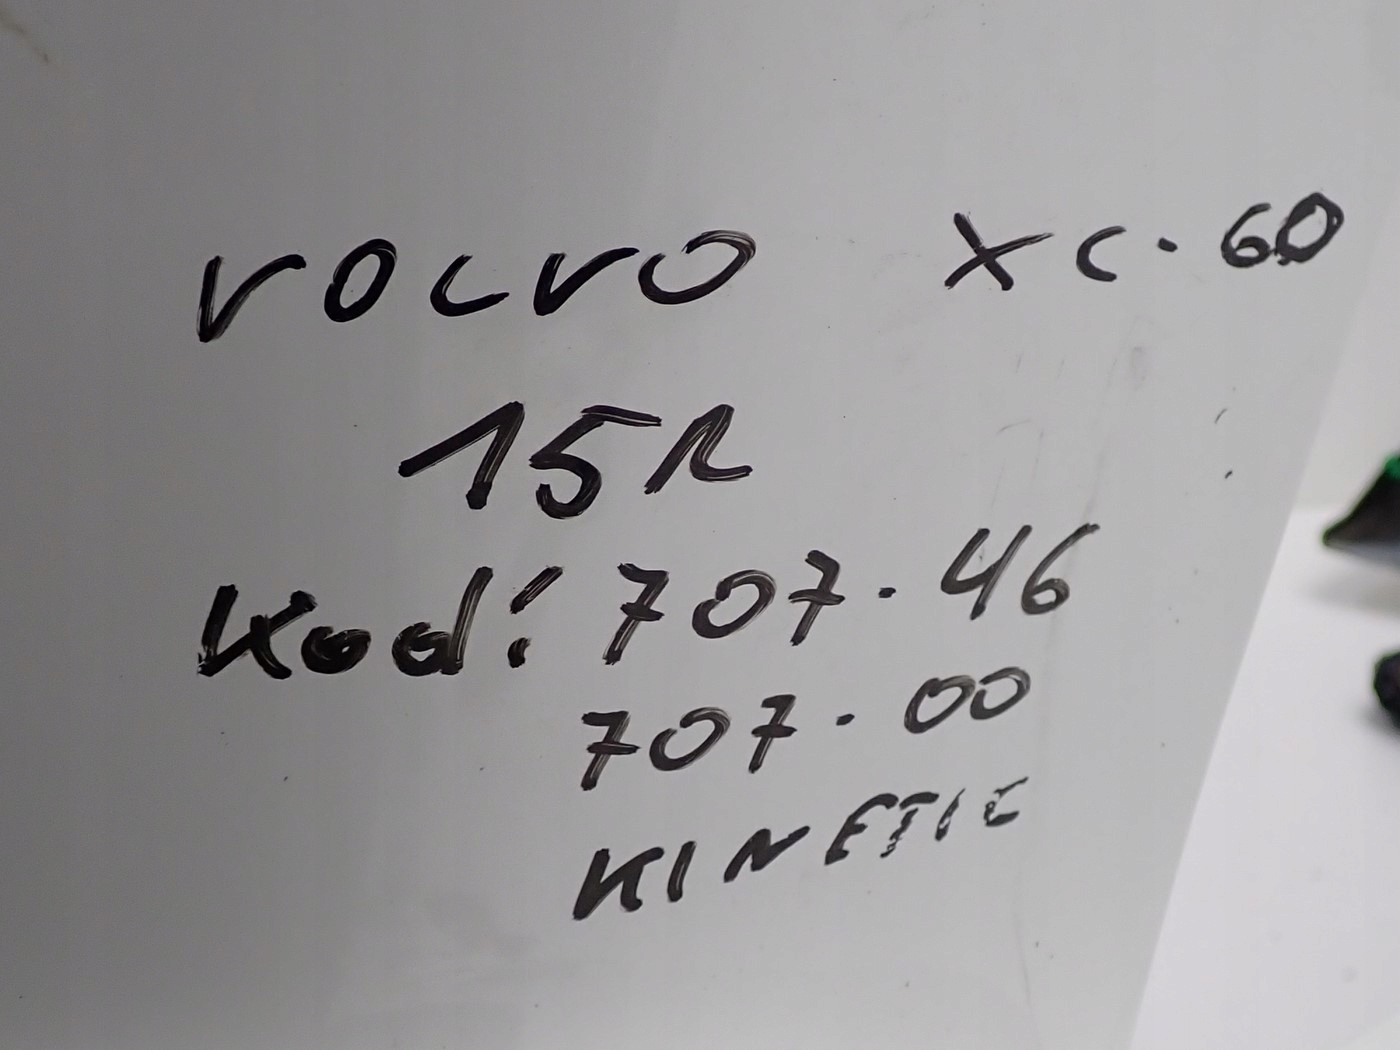 VOLVO XC.60
15R
Kod: 707.46
707.00
KINETIC